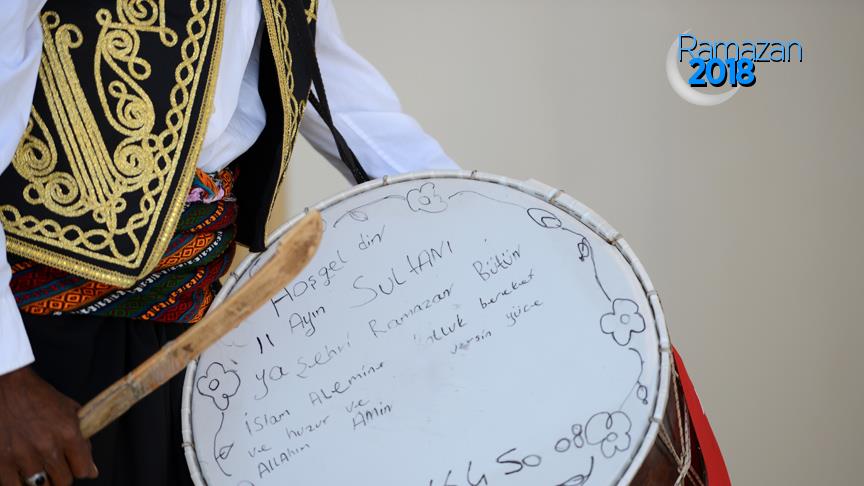 Ramazan
2018
Hoşgel din
11 Ayın SULTANI
yaşehri Ramazan Bütün
İslam ALEMİNE bolluk bereket
ve huzur ve versin yüce
ALLAHIM AMİN
445008